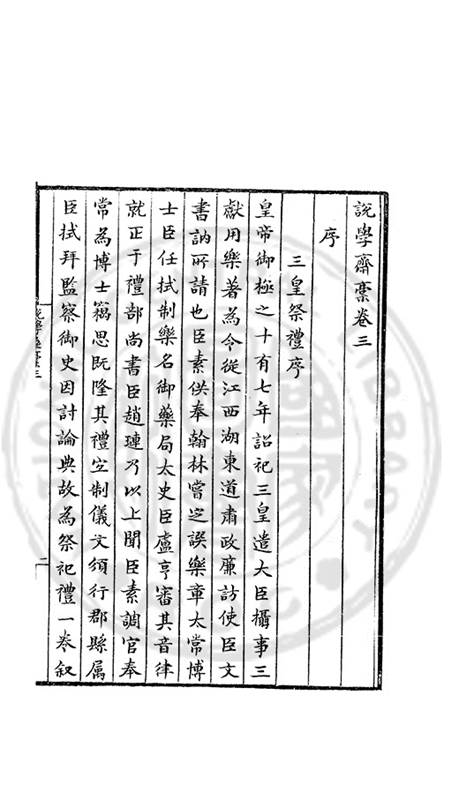 說學齋稾卷三
序
三皇祭禮序
皇帝御極之十有七年詔祀三皇遣大臣攝事三
獻用樂著為令從江西湖東道肅政廉訪使臣文
書訥所請也臣素供奉翰林嘗定譔樂章太常博
士臣任拭制樂名御藥局太史臣盧亨審其音律
就正于禮部尚書臣趙璉乃以上聞臣素調官奉
常為博士竊思既隆其禮宜制儀文頒行郡縣属
臣拭拜監察御史因討論典故為祭祀禮一卷叙
二